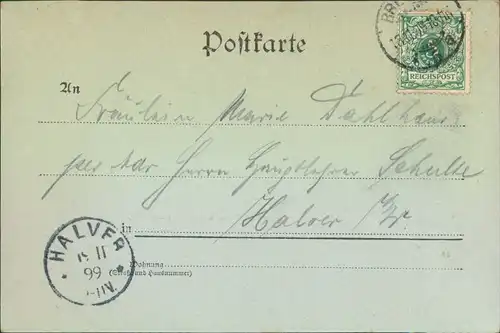 Postkarte
REICHSPOST
An
Fräulein Marie Dahlhaus
per adr Herrn Hauptlehrer Schulte
in Halver i/W.
HALVER
11
99
Wohnung
(Straße und Hausnummer)